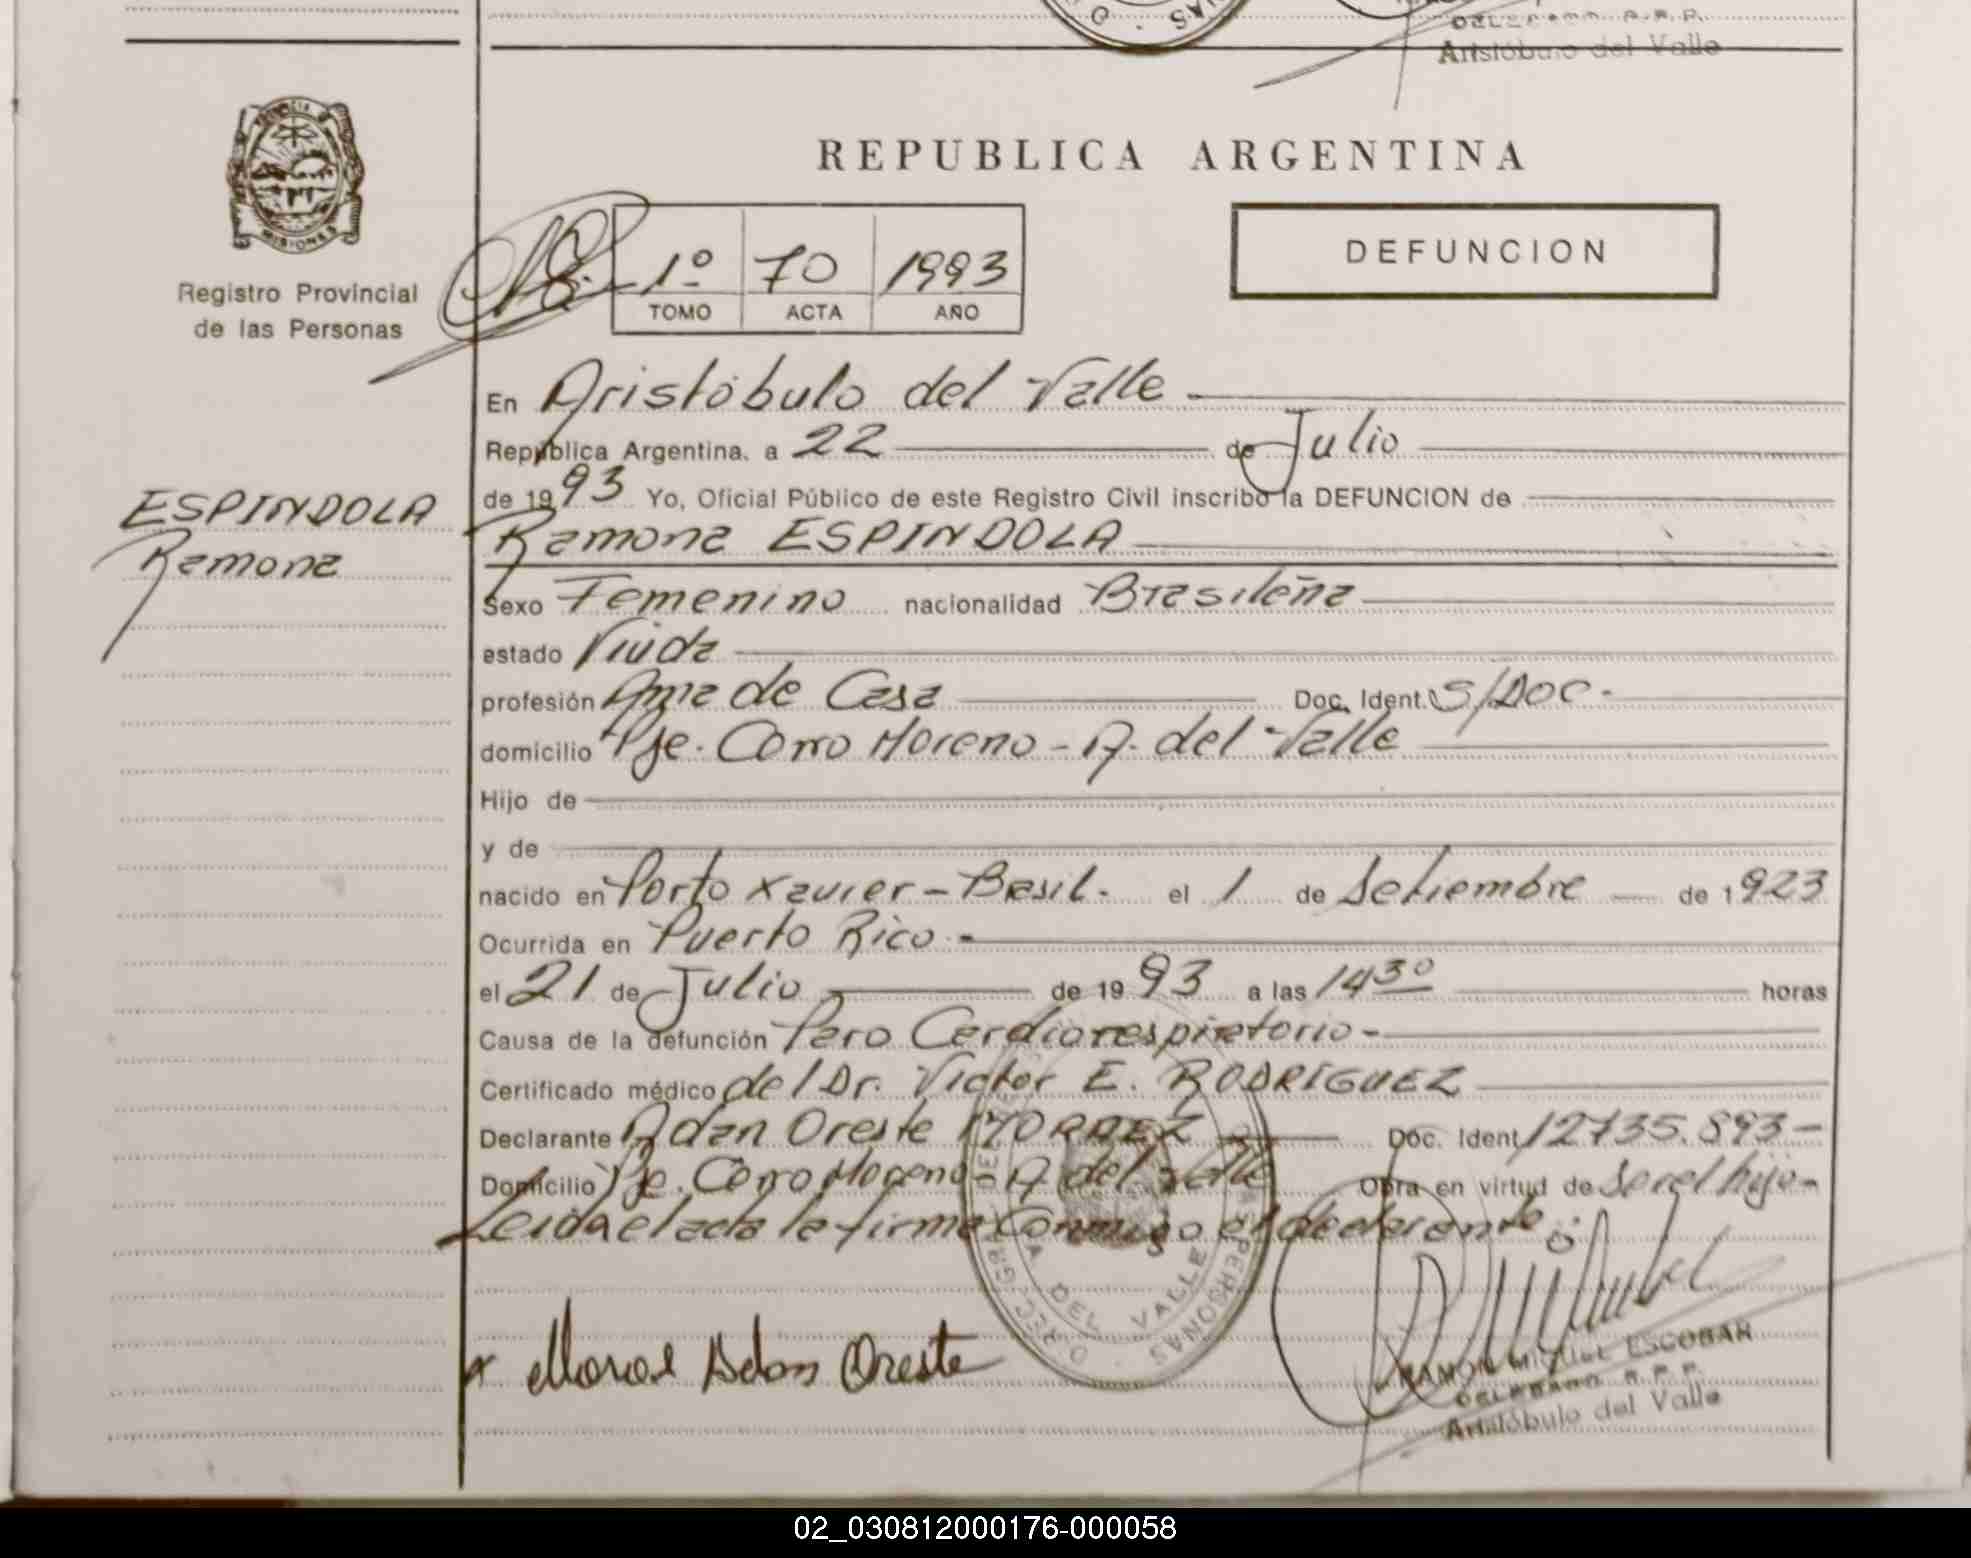 DELEGADO R.P.P.
Aristóbulo del Valle
PROVINCIA
MISIONES
Registro Provincial
de las Personas
REPUBLICA ARGENTINA
DEFUNCION
1º 70 1993
TOMO ACTA AÑO
En Aristóbulo del Valle
República Argentina, a 22 de Julio
de 1993 Yo, Oficial Público de este Registro Civil inscribo la DEFUNCION de
ESPINDOLA
Ramona
Ramona ESPINDOLA
Sexo Femenino nacionalidad Brasileña
estado Viuda
profesión Ama de Casa Doc. Ident. S/DOC.
domicilio Pje. Corro Moreno - A. del Valle
Hijo de
y de
nacido en Porto Xavier - Brasil. el 1 de Setiembre de 1923
Ocurrida en Puerto Rico.-
el 21 de Julio de 1993 a las 14³⁰ horas
Causa de la defunción Paro Cardiorespiratorio-
Certificado médico del Dr. Victor E. RODRIGUEZ
Declarante Adan Oreste Doc. Ident. 12735.893-
Domicilio Pje. Corro Moreno - A. del Valle Obra en virtud de ser el hijo-
Leida el acta la firma conmigo el declarante.:
DEL VALLE
PERSONAS
x Adan Oreste
RAMON MIGUEL ESCOBAR
DELEGADO R.P.P.
Aristóbulo del Valle
02_030812000176-000058